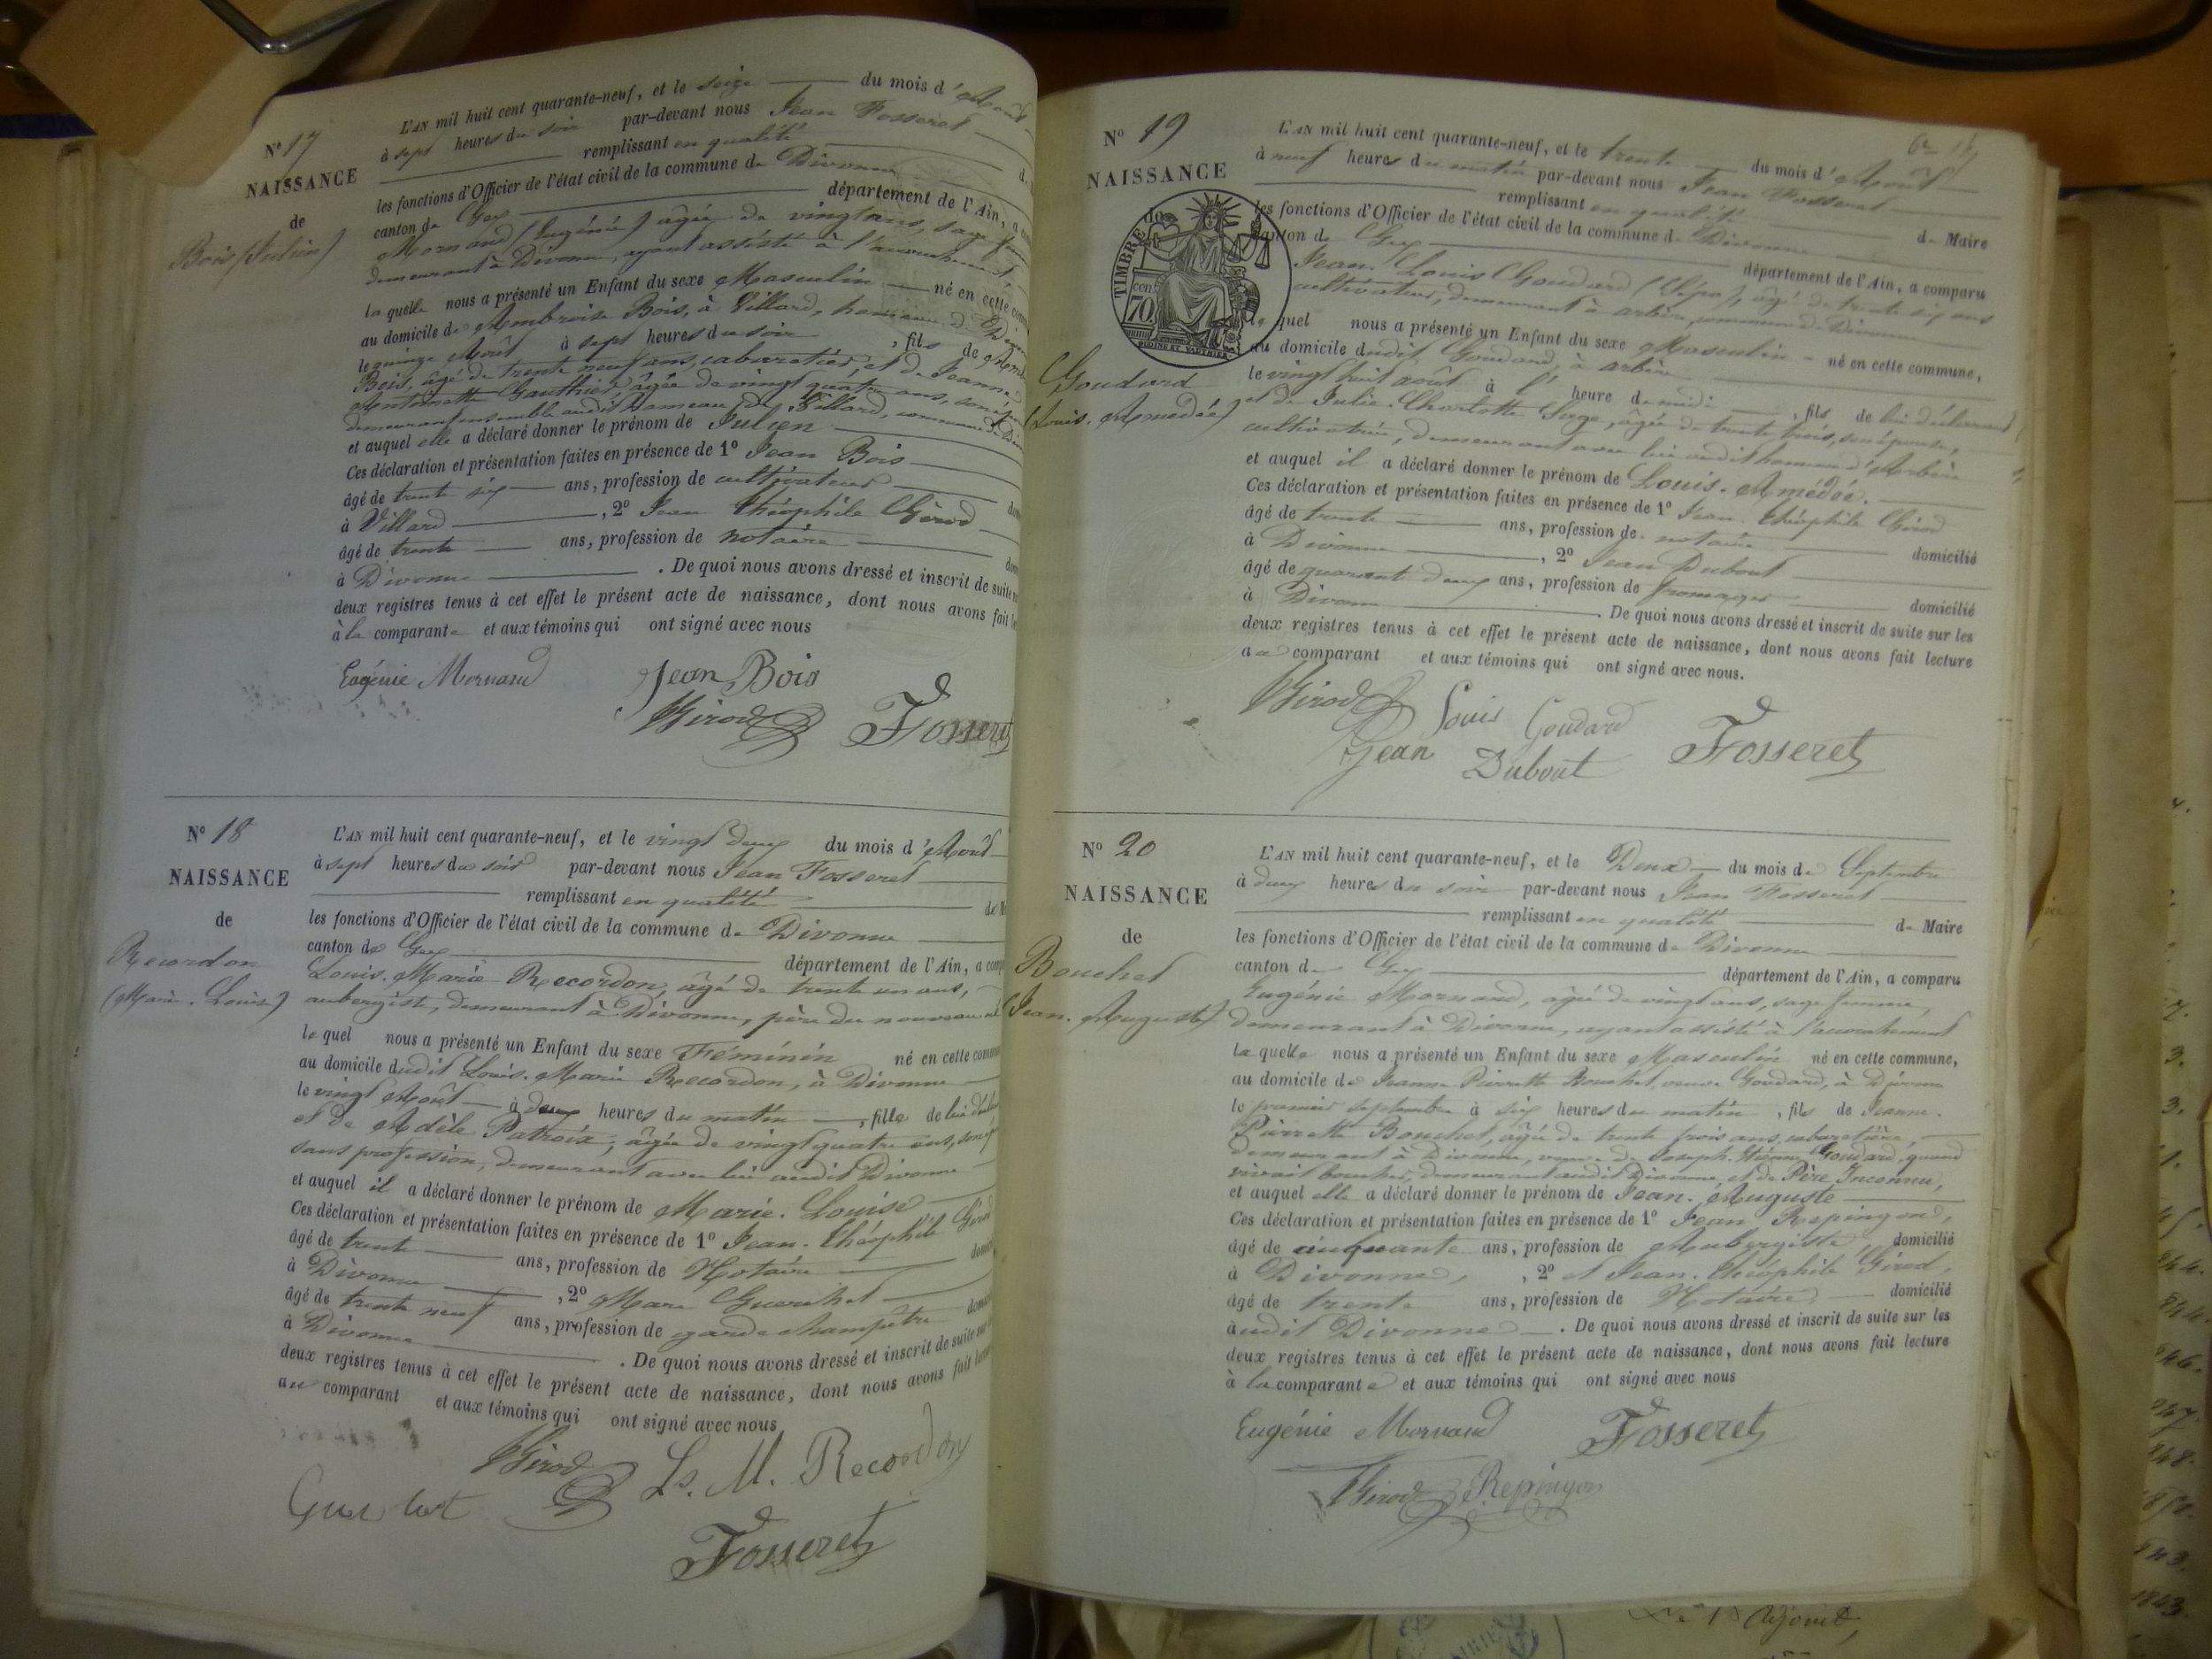 N° 17
NAISSANCE
de
Bois (Julien)
L'AN mil huit cent quarante-neuf, et le seize du mois d'Août
à sept heures du soir par-devant nous Jean Fosseret
remplissant en qualité d
les fonctions d'Officier de l'état civil de la commune de Divonne
canton de Gex département de l'Ain, a
Mornand (Eugénie) agée de vingt ans, sage
demeurant à Divonne, ayant assisté à l'accouchement,
laquelle nous a présenté un Enfant du sexe Masculin né en cette
au domicile de Ambroise Bois, à Villard, hameau de
le quinze Août à sept heures du soir, fils de
Bois, âgé de trente neuf ans, cabaretier, et de Jeanne
Antoinette Gauthier, âgée de vingt quatre ans, son
demeurant ensemble audit Hameau de Villard, commune de
et auquel elle a déclaré donner le prénom de Julien
Ces déclaration et présentation faites en présence de 1° Jean Bois
âgé de trente six ans, profession de cultivateur
à Villard, 2° Jean Théophile Girod
âgé de trente ans, profession de notaire
à Divonne. De quoi nous avons dressé et inscrit de suite
deux registres tenus à cet effet le présent acte de naissance, dont nous avons fait
à la comparante et aux témoins qui ont signé avec nous
Eugénie Mornand Jean Bois
Girod Fosseret
N° 18
NAISSANCE
de
Recordon
(Marie-Louise)
L'AN mil huit cent quarante-neuf, et le vingt deux du mois d'Août
à sept heures du soir par-devant nous Jean Fosseret
remplissant en qualité de
les fonctions d'Officier de l'état civil de la commune de Divonne
canton de Gex département de l'Ain, a
Louis-Marie Recordon, âgé de trente un ans,
aubergiste, demeurant à Divonne, père du nouveau né
lequel nous a présenté un Enfant du sexe Féminin né en cette
au domicile dudit Louis-Marie Recordon, à Divonne
le vingt Août à deux heures du matin, fille de lui
et de Adèle Patroix, âgée de vingt quatre ans, son
sans profession, demeurant avec lui audit Divonne
et auquel il a déclaré donner le prénom de Marie-Louise
Ces déclaration et présentation faites en présence de 1° Jean-Théophile Girod
âgé de trente ans, profession de Notaire
à Divonne, 2° Marc Guerchet
âgé de trente neuf ans, profession de garde champêtre
à Divonne. De quoi nous avons dressé et inscrit de suite
deux registres tenus à cet effet le présent acte de naissance, dont nous avons fait
au comparant et aux témoins qui ont signé avec nous
Girod Ls. M. Recordon
Fosseret
N° 19
NAISSANCE
TIMBRE
70 cen
Goudard
(Louis-Amédée)
L'AN mil huit cent quarante-neuf, et le trente du mois d'Août
à neuf heures du matin par-devant nous Jean Fosseret
remplissant en qualité de Maire
les fonctions d'Officier de l'état civil de la commune de Divonne
canton de Gex département de l'Ain, a comparu
Jean-Louis Goudard, âgé de trente six ans
cultivateur, demeurant à arbère, commune de Divonne
lequel nous a présenté un Enfant du sexe Masculin né en cette commune,
au domicile dudit Goudard, à arbère
le vingt huit août à l' heure de midi, fils de lui déclarant
et de Julie-Charlotte Sage, âgée de trente trois, son épouse,
cultivatrice, demeurant avec lui audit hameau d'Arbère
et auquel il a déclaré donner le prénom de Louis-Amédée.
Ces déclaration et présentation faites en présence de 1° Jean Théophile Girod
âgé de trente ans, profession de notaire domicilié
à Divonne, 2° Jean Dubout
âgé de quarante deux ans, profession de fromager domicilié
à Divonne. De quoi nous avons dressé et inscrit de suite sur les
deux registres tenus à cet effet le présent acte de naissance, dont nous avons fait lecture
au comparant et aux témoins qui ont signé avec nous.
Girod Louis Goudard
Jean Dubout Fosseret
N° 20
NAISSANCE
de
Bouchet
(Jean-Auguste)
L'AN mil huit cent quarante-neuf, et le Deux du mois de Septembre
à deux heures du soir par-devant nous Jean Fosseret
remplissant en qualité de Maire
les fonctions d'Officier de l'état civil de la commune de Divonne
canton de Gex département de l'Ain, a comparu
Eugénie Mornand, âgée de vingt ans, sage femme,
demeurant à Divonne, ayant assisté à l'accouchement
laquelle nous a présenté un Enfant du sexe Masculin né en cette commune,
au domicile de Jeanne Pierrette Bouchet, veuve Goudard, à Divonne
le premier septembre à six heures du matin, fils de Jeanne-
Pierrette Bouchet, âgée de trente trois ans, cabaretière,
demeurant à Divonne, veuve de Joseph-Etienne Goudard, quand
vivait boucher, demeurant audit Divonne, et de Père Inconnu,
et auquel elle a déclaré donner le prénom de Jean-Auguste
Ces déclaration et présentation faites en présence de 1° Jean Repingon,
âgé de cinquante ans, profession de Aubergiste domicilié
à Divonne, 2° et Jean-Théophile Girod,
âgé de trente ans, profession de Notaire domicilié
audit Divonne. De quoi nous avons dressé et inscrit de suite sur les
deux registres tenus à cet effet le présent acte de naissance, dont nous avons fait lecture
à la comparante et aux témoins qui ont signé avec nous
Eugénie Mornand Fosseret
Girod Repingon